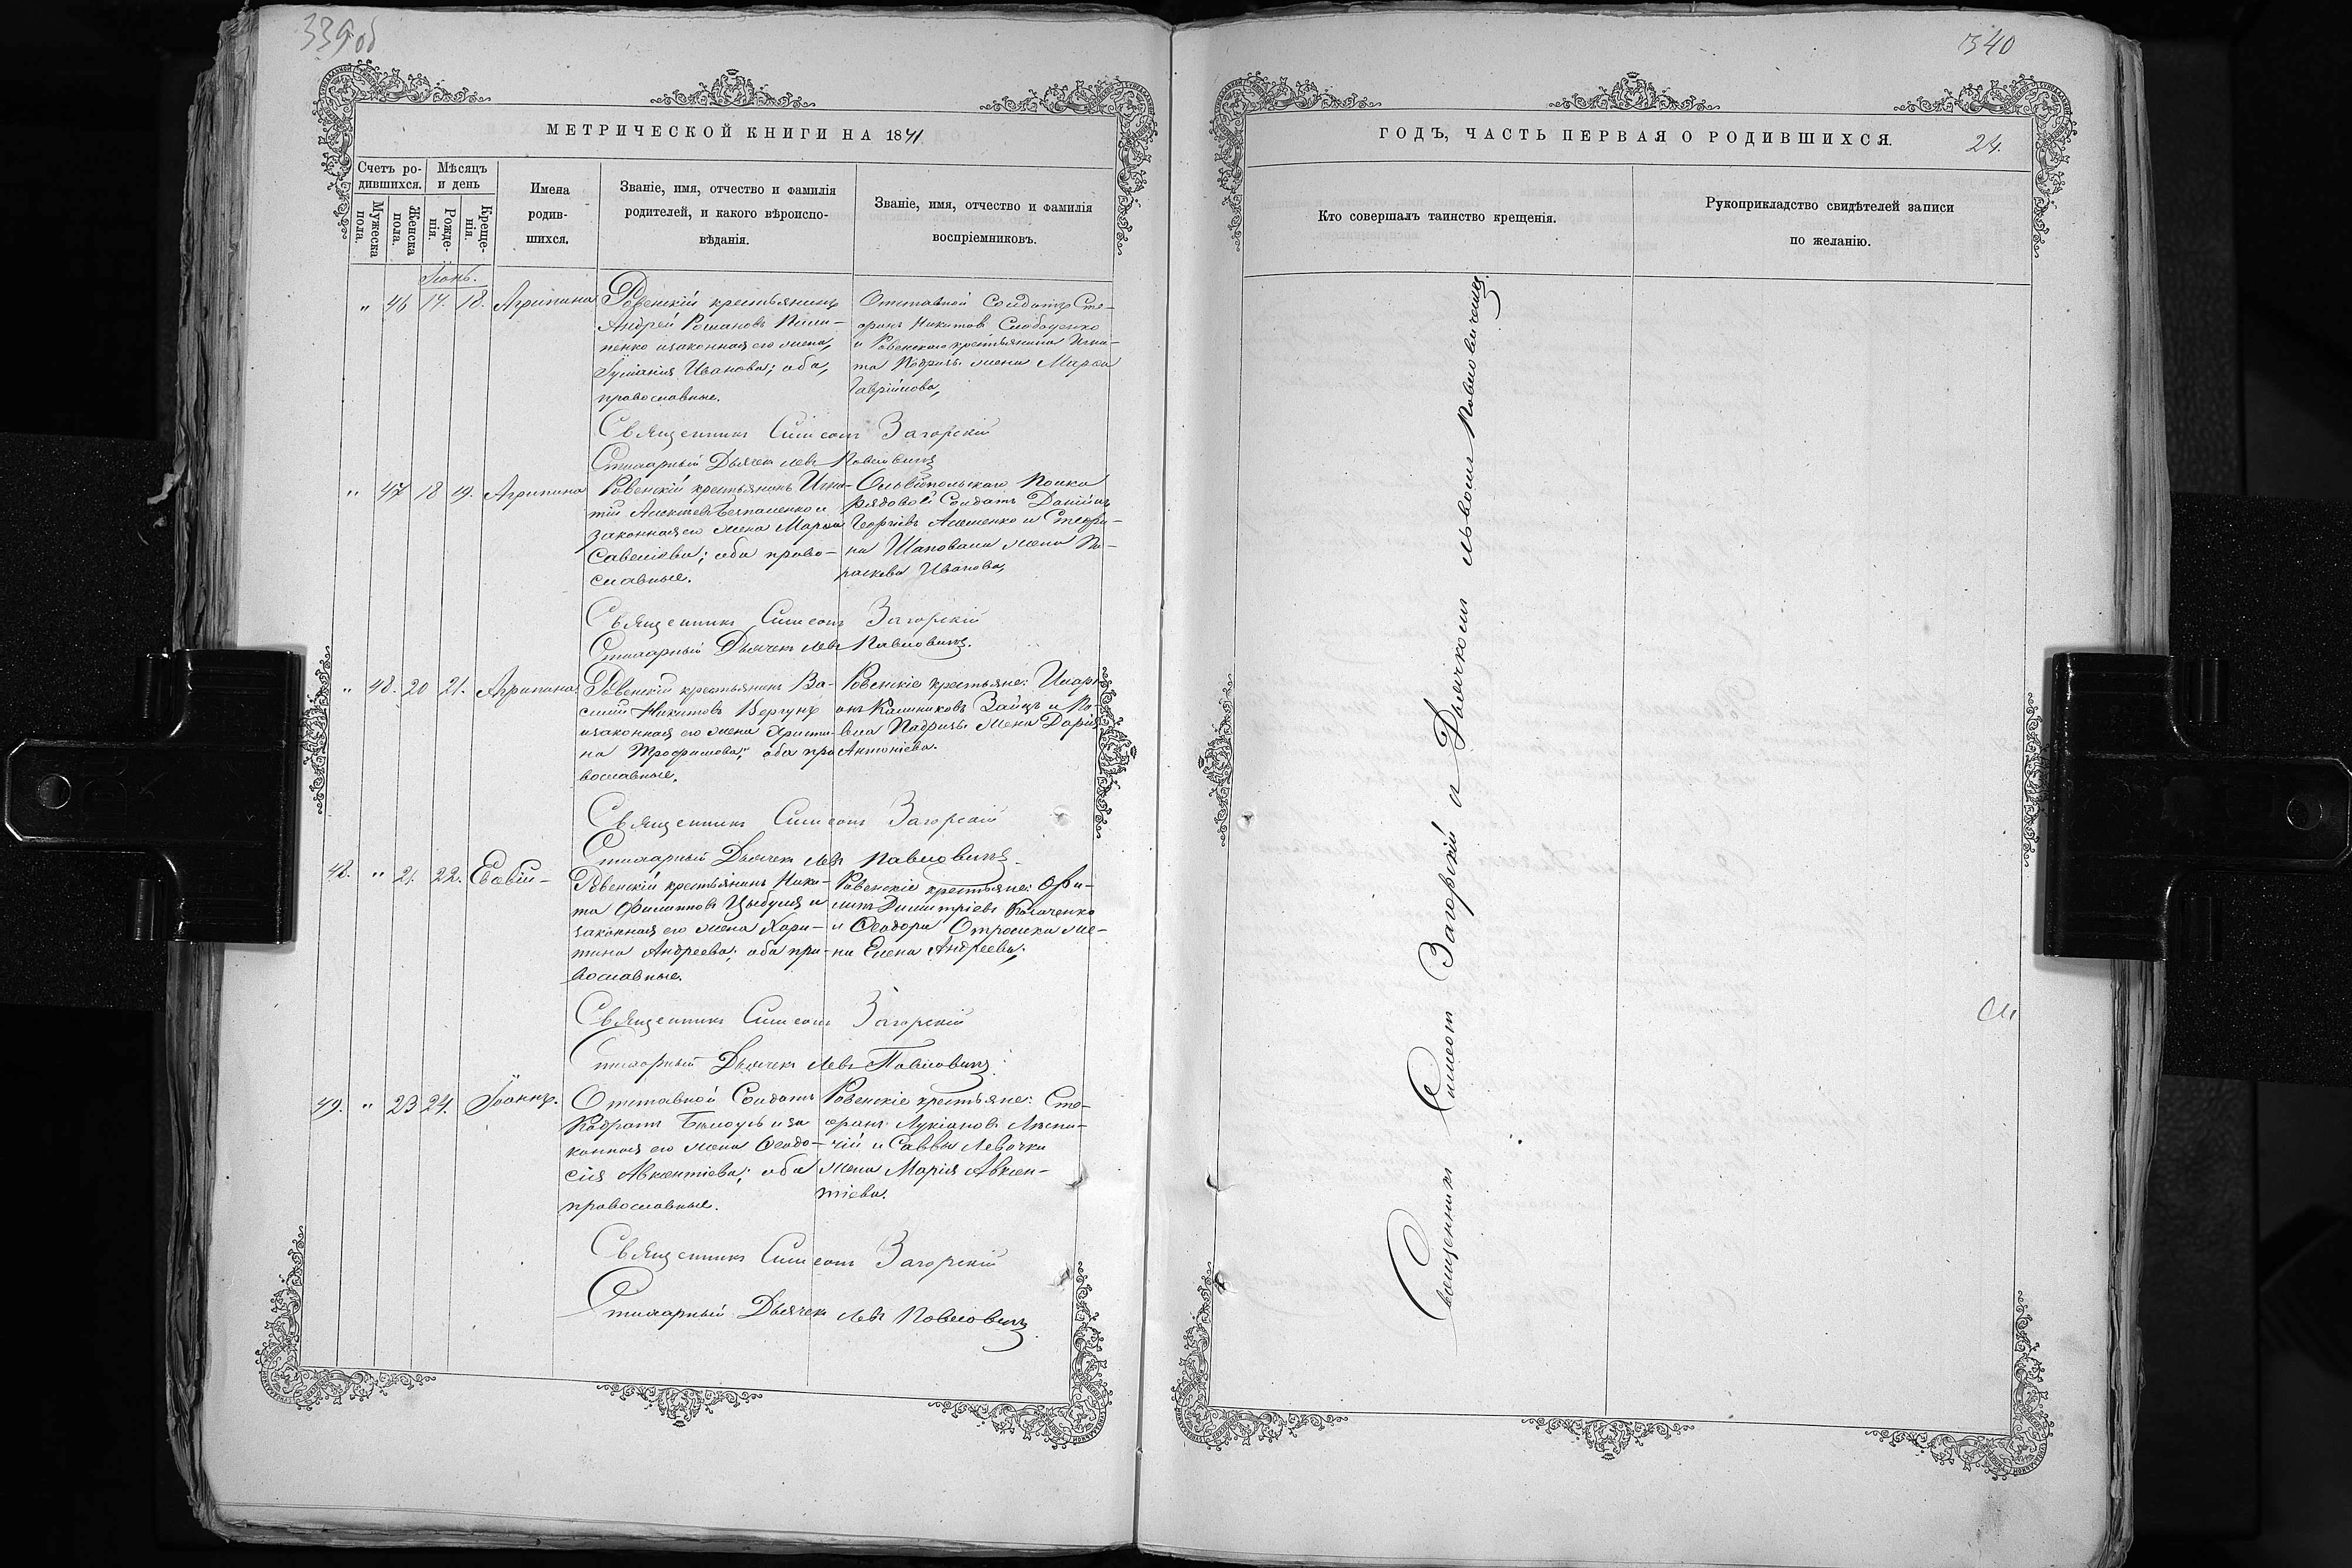 339 об
МЕТРИЧЕСКОЙ КНИГИ НА 1871
Счетъ ро-
дившихся.
Мѣсяцъ
и день
Мужеска
пола.
Женска
пола.
Рожде-
нія.
Креще-
нія.
Имена
родив-
шихся.
Званіе, имя, отчество и фамилія
родителей, и какого вѣроиспо-
вѣданія.
Званіе, имя, отчество и фамилія
воспріемниковъ.
Іюнь.
" 46 17. 18. Агрипина
Ровенскій крестьянинъ
Андрей Романовъ
и законная его жена,
Иванова; оба,
православные.
Отставной Солдатъ Сте-
фанъ Никитов Слободенко
и Ровенского крестьянина Игна-
та жена Марфа
Гаврійлова,
Священникъ Симеонъ Загорскій
Стихарный Дьячекъ Левъ Павловичъ
" 47 18 19. Агрипина
Ровенскій крестьянинъ Игна-
тій Алексѣевъ и
законная его жена Марфа
Савеліева; оба право-
славные.
Ольвіопольскаго Полка
Рядовой Солдатъ Даніилъ
Георгіевъ и Стефа-
на Шаповала жена Па-
раскева Иванова,
Священникъ Симеонъ Загорскій
Стихарный Дьячекъ Левъ Павловичъ.
" 48. 20 21. Агрипина
Ровенскій крестьянинъ Ва-
силій Никитовъ Вергунъ
и законная его жена Христи-
на Трофимова; оба пра
вославные.
Ровенскіе крестьяне: Илари
онъ Калиниковъ Зайцъ и Па-
вла жена Дарія
Антоніева.
Священникъ Симеонъ Загорскій
Стихарный Дьячекъ Левъ Павловичъ
48. " 21. 22. Евсевій-
Ровенскій крестьянинъ Ники-
та Филиповъ Цыбуля и
законная его жена Хари-
тина Андреева; оба пра-
вославные.
Ровенскіе крестьяне: Фи-
липъ Димитріевъ
и Ѳеодора жe-
на Елена Андреева;
Священникъ Симеонъ Загорскій
Стихарный Дьячекъ Левъ Павловичъ
49. " 23 24. Іоаннъ.
Отставной Солдатъ
Кодратъ Билоусъ и за
конная его жена Ѳеодо-
сія Авксентіева; оба
православные.
Ровенскіе крестьяне: Сте-
фанъ Лукіановъ Лѣсни-
чій и Саввы Левочки
жена Марія Авксен-
тіева.
Священникъ Симеонъ Загорскій
Стихарный Дьячекъ Левъ Павловичъ
340
ГОДЪ, ЧАСТЬ ПЕРВАЯ О РОДИВШИХСЯ.
24.
Кто совершалъ таинство крещенія.
Рукоприкладство свидѣтелей записи
по желанію.
Священникъ Симеон Загорскій съ Дьячкомъ Львомъ Павловичемъ